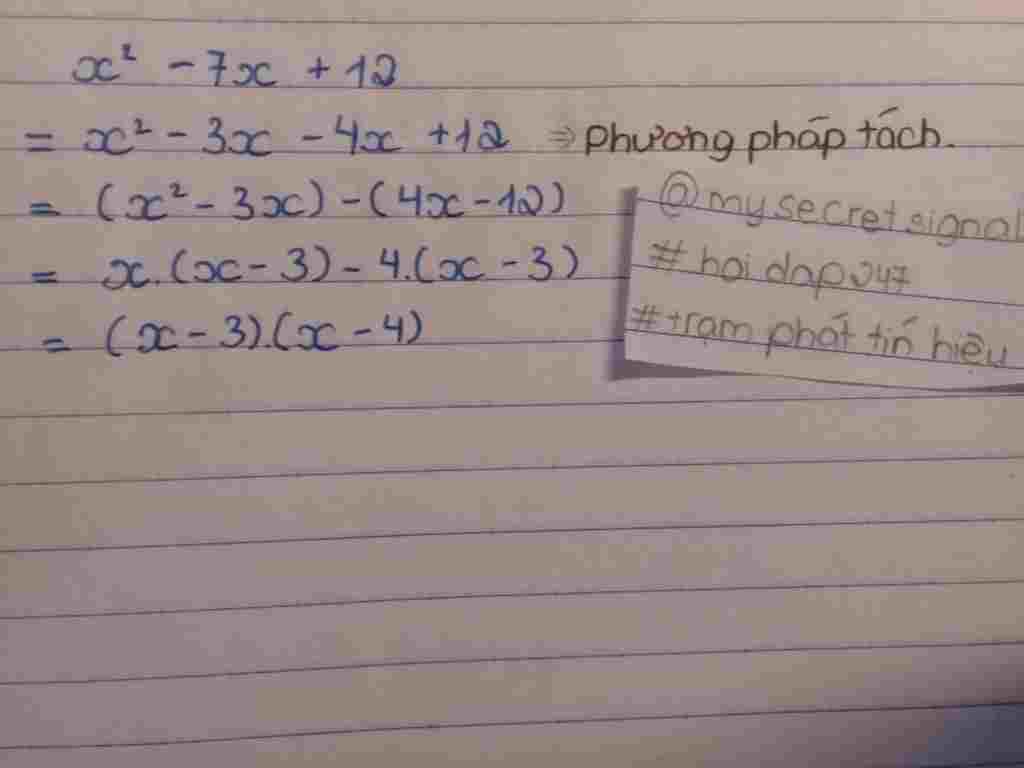 x² - 7x + 12
= x² - 3x - 4x + 12 => phương pháp tách.
= (x² - 3x) - (4x - 12)
= x.(x - 3) - 4.(x - 3)
= (x - 3).(x - 4)
@mysecretsignal
#hoidap247
#trạm phát tín hiệu